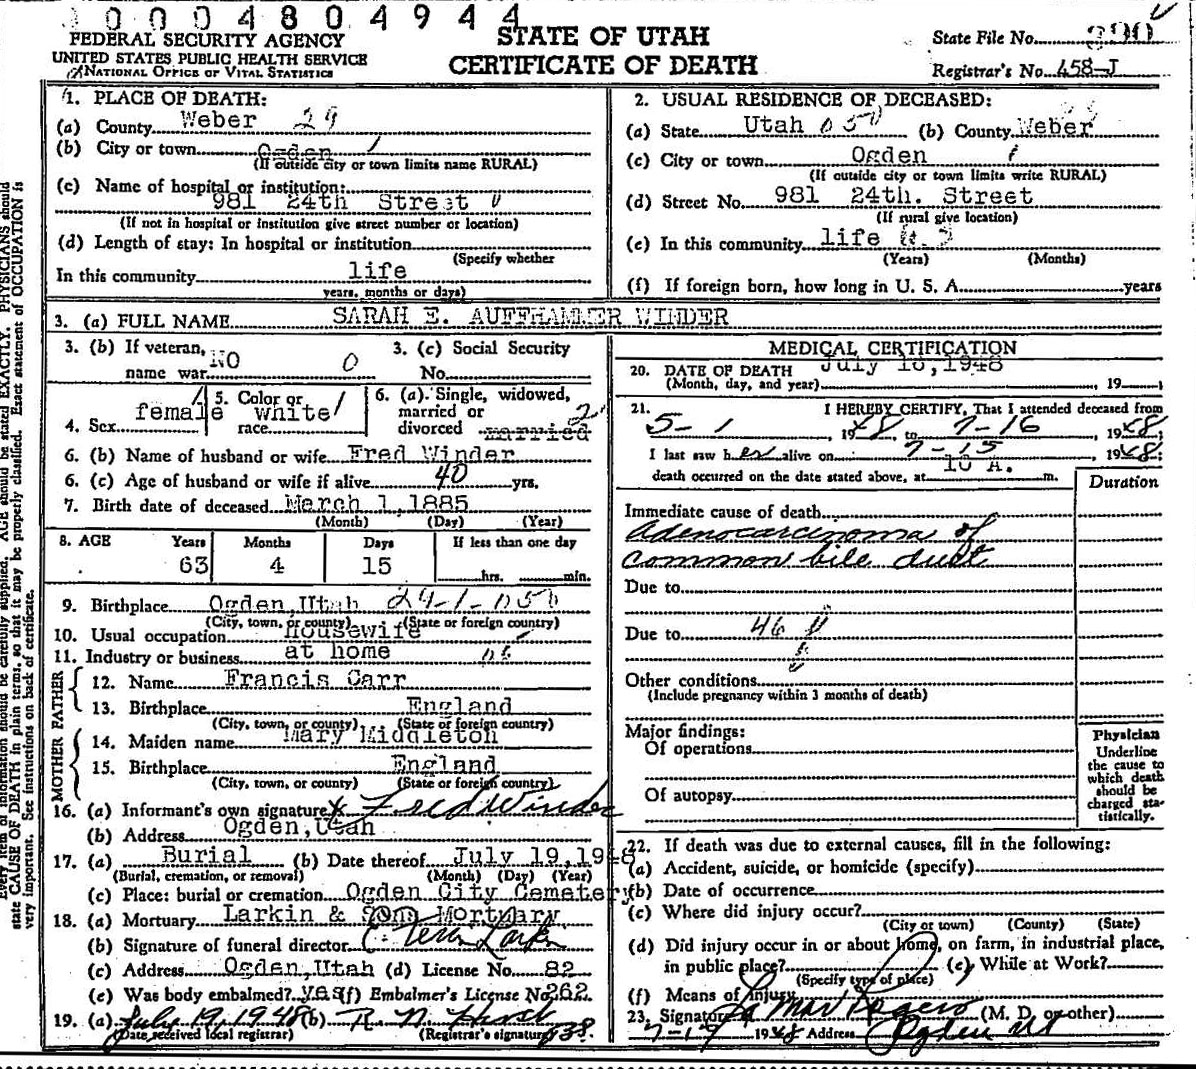 0004804944
FEDERAL SECURITY AGENCY
UNITED STATES PUBLIC HEALTH SERVICE
NATIONAL OFFICE OF VITAL STATISTICS
STATE OF UTAH
CERTIFICATE OF DEATH
State File No.
Registrar's No. 458-J
1. PLACE OF DEATH:
(a) County Weber 29
(b) City or town Ogden 1
(If outside city or town limits name RURAL)
(c) Name of hospital or institution:
981 24th Street
(If not in hospital or institution give street number or location)
(d) Length of stay: In hospital or institution
(Specify whether
In this community life
years, months or days)
2. USUAL RESIDENCE OF DECEASED:
(a) State Utah 050 (b) County Weber
(c) City or town Ogden
(If outside city or town limits write RURAL)
(d) Street No. 981 24th. Street
(If rural give location)
(e) In this community life
(Years) (Months)
(f) If foreign born, how long in U. S. A. years
3. (a) FULL NAME SARAH E. AUFFHAMMER WINDER
3. (b) If veteran,
name war NO 0
3. (c) Social Security
No.
4. Sex female
5. Color or
race white
6. (a) Single, widowed,
married or
divorced married 2
6. (b) Name of husband or wife Fred Winder
6. (c) Age of husband or wife if alive 40 yrs.
7. Birth date of deceased March 1, 1885
(Month) (Day) (Year)
8. AGE Years Months Days If less than one day
63 4 15 hrs. min.
9. Birthplace Ogden, Utah 29-1-050
(City, town, or county) (State or foreign country)
10. Usual occupation housewife
11. Industry or business at home
FATHER
12. Name Francis Carr
13. Birthplace England
(City, town, or county) (State or foreign country)
MOTHER
14. Maiden name Mary Middleton
15. Birthplace England
(City, town, or county) (State or foreign country)
16. (a) Informant's own signature x Fred Winder
(b) Address Ogden, Utah
17. (a) Burial (b) Date thereof July 19, 1948
(Burial, cremation, or removal) (Month) (Day) (Year)
(c) Place: burial or cremation Ogden City Cemetery
18. (a) Mortuary Larkin & Sons Mortuary
(b) Signature of funeral director Larkin
(c) Address Ogden, Utah (d) License No. 82
(e) Was body embalmed? yes (f) Embalmer's License No. 262
19. (a) July 19, 1948 (b) R. N.
(Date received local registrar) (Registrar's signature)
MEDICAL CERTIFICATION
20. DATE OF DEATH July 16, 1948
(Month, day, and year) , 19 ;
21. I HEREBY CERTIFY, That I attended deceased from
5-1, 1948 to 7-16, 1948;
I last saw her alive on 7-15, 1948;
death occurred on the date stated above, at 10 A. m.
Duration
Immediate cause of death
Adenocarcinoma of
common bile duct
Due to
Due to 46
Other conditions
(Include pregnancy within 3 months of death)
Major findings:
Of operations
Of autopsy
Physician
Underline
the cause to
which death
should be
charged sta-
tistically.
22. If death was due to external causes, fill in the following:
(a) Accident, suicide, or homicide (specify)
(b) Date of occurrence
(c) Where did injury occur?
(City or town) (County) (State)
(d) Did injury occur in or about home, on farm, in industrial place,
in public place? (e) While at Work?
(Specify type of place)
(f) Means of Injury
23. Signature LaMar Rogers (M. D. or other)
7-19 1948 Address Ogden Ut
Every item of information should be carefully supplied. AGE should be stated EXACTLY. PHYSICIANS should
state CAUSE OF DEATH in plain terms, so that it may be properly classified. Exact statement of OCCUPATION is
very important. See instructions on back of certificate.